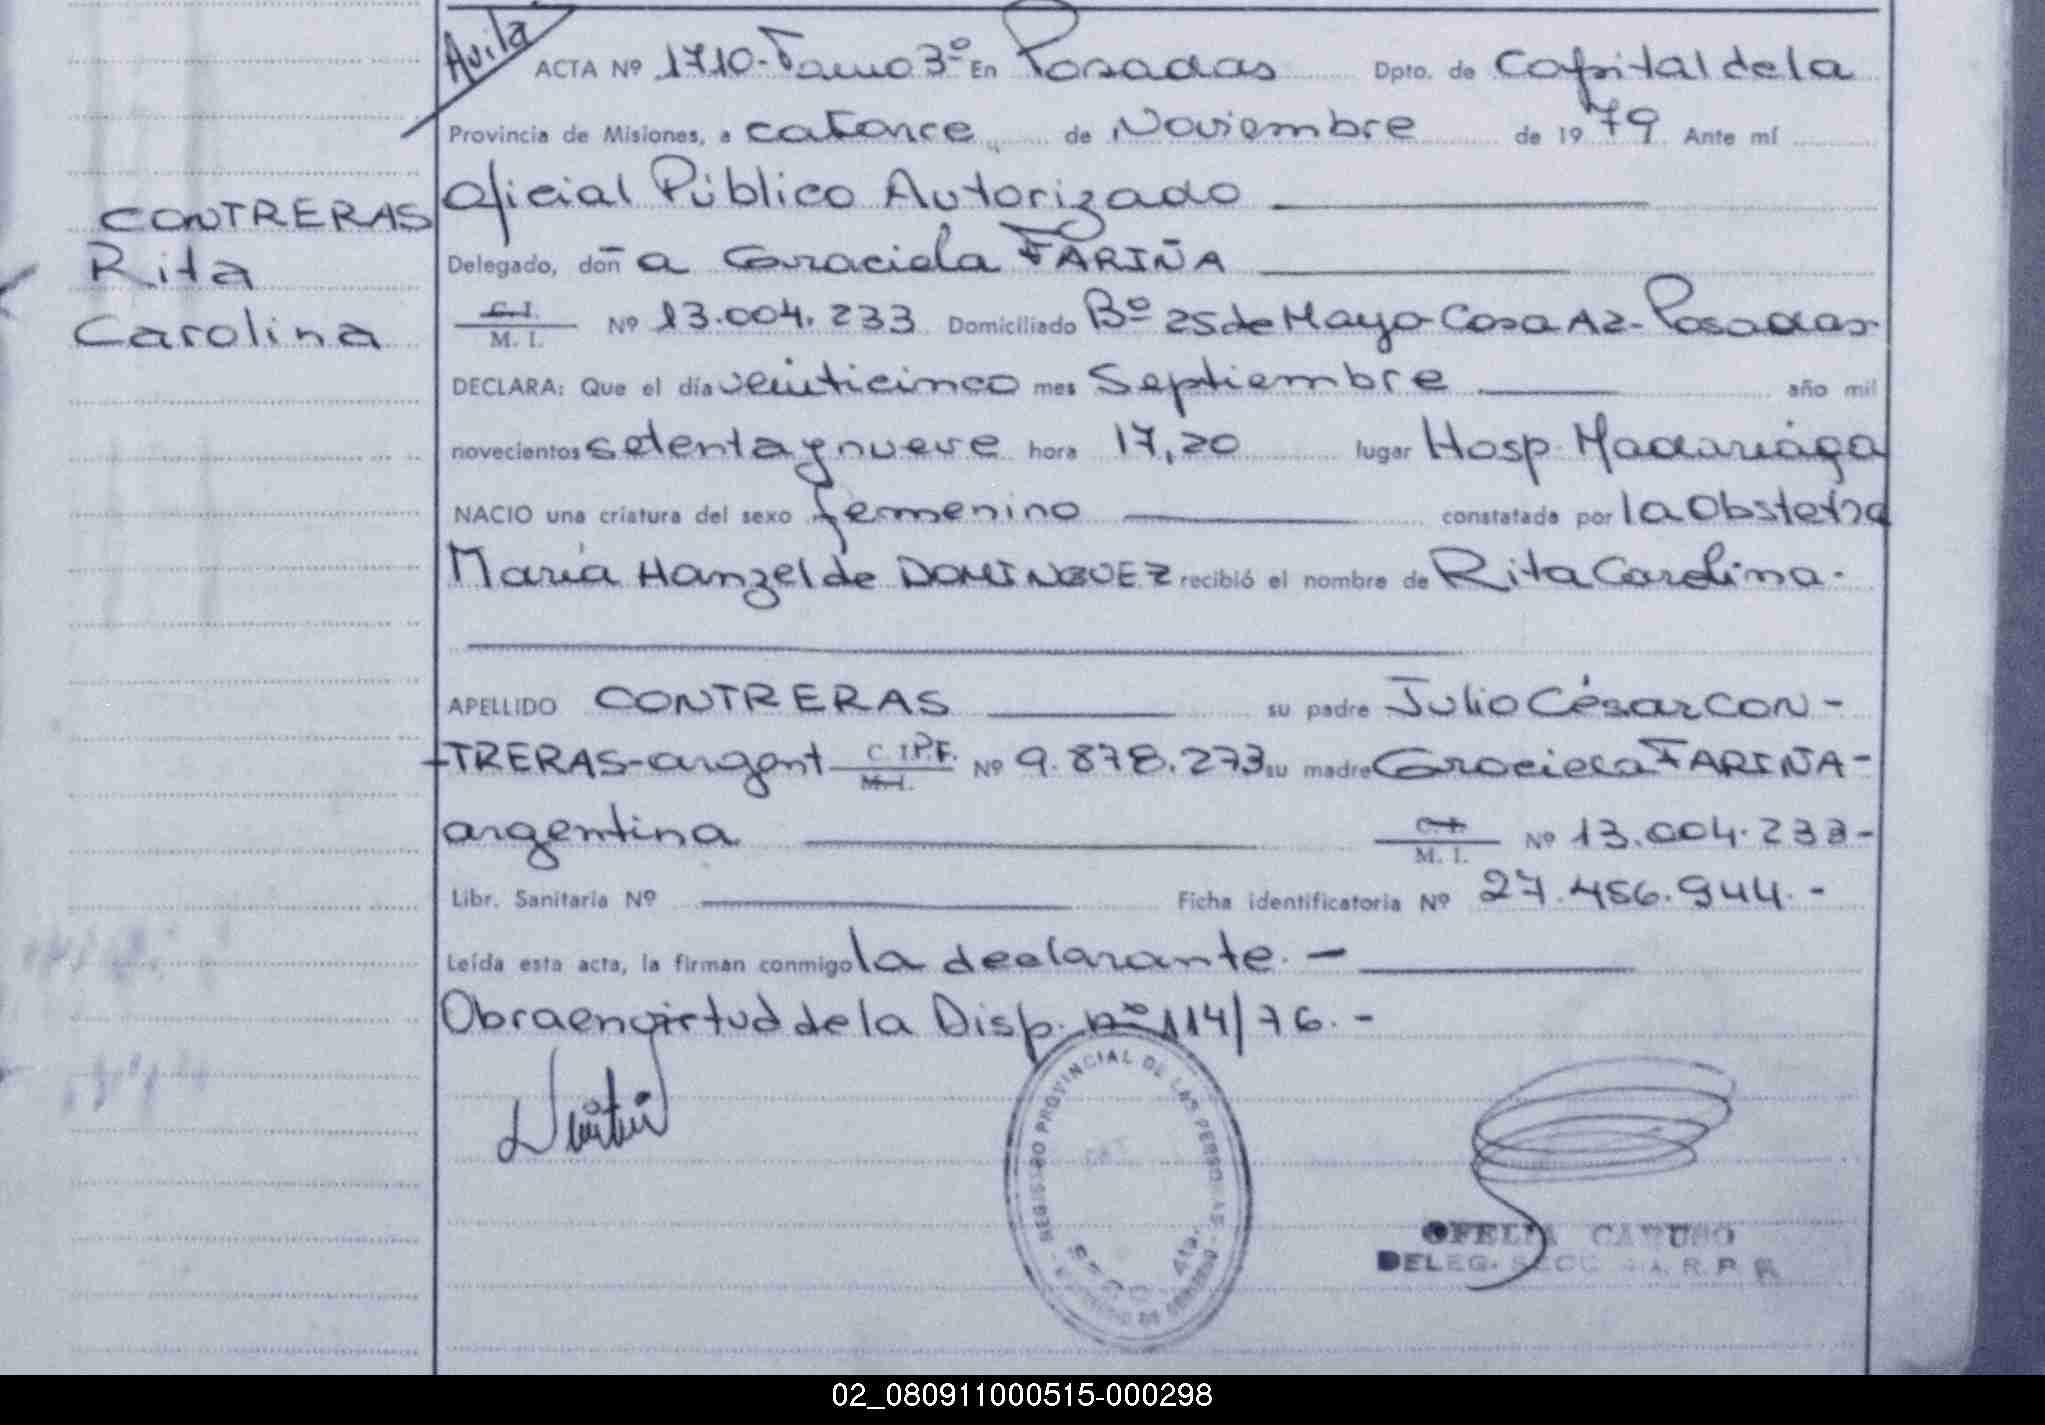 Avila
ACTA Nº 1710- Tomo 3º En Posadas Dpto. de Capital de la
Provincia de Misiones, a catorce de Noviembre de 1979 Ante mí
Oficial Público Autorizado
Delegado, doña Graciela FARIÑA
C. I. M. I. Nº 13.004.233 Domiciliado Bº 25 de Mayo Casa A2- Posadas
DECLARA: Que el día veinticinco mes Septiembre año mil
novecientos setenta y nueve hora 17,20 lugar Hosp. Madariaga
NACIO una criatura del sexo femenino constatada por la Obstetra
María Hanzel de DOMINGUEZ recibió el nombre de Rita Carolina.
APELLIDO CONTRERAS su padre Julio César CON-
TRERAS-argent C. I. P.F. M. I. Nº 9.878.273 su madre Graciela FARIÑA-
argentina C. I. M. I. Nº 13.004.233-
Libr. Sanitaria Nº Ficha identificatoria Nº 27.456.944.-
Leída esta acta, la firman conmigo la declarante.-
Obra en virtud de la Disp. nº 114/76.-
CONTRERAS
Rita
Carolina
REGISTRO PROVINCIAL DE LAS PERSONAS
SECC 4ta.
OFELIA CARUSO
DELEG. SECC 4a. R. P. P.
02_080911000515-000298